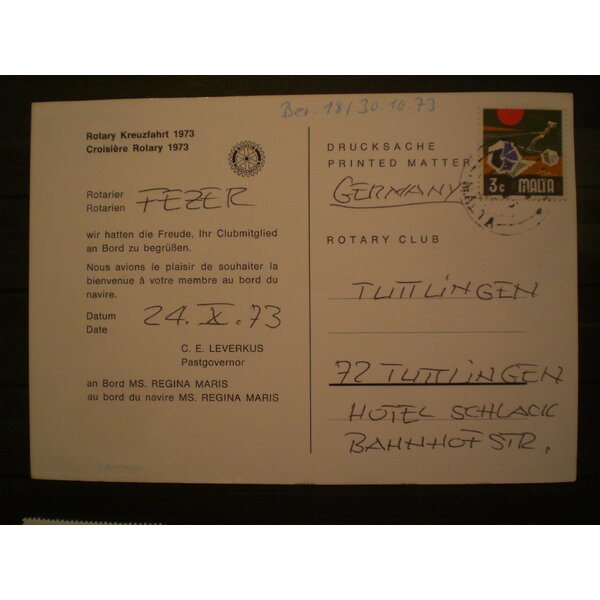 Ber. 18/30.10.73
Rotary Kreuzfahrt 1973
Croisière Rotary 1973
Rotarier
Rotarien
FEZER
wir hatten die Freude, Ihr Clubmitglied
an Bord zu begrüßen.
Nous avions le plaisir de souhaiter la
bienvenue à votre membre au bord du
navire.
Datum
Date
24. X. 73
C. E. LEVERKUS
Pastgovernor
an Bord MS. REGINA MARIS
au bord du navire MS. REGINA MARIS
DRUCKSACHE
PRINTED MATTER
GERMANY
3c MALTA
MALTA
ROTARY CLUB
TUTTLINGEN
72 TUTTLINGEN
HOTEL SCHLACK
BAHNHOFSTR.